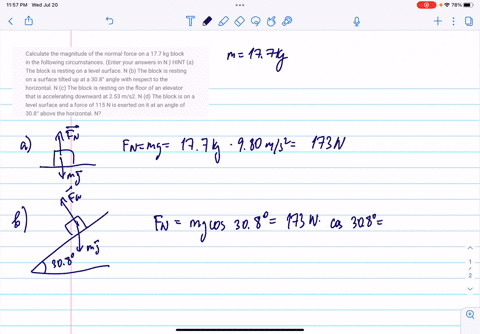 11:57 PM Wed Jul 20
78%
Calculate the magnitude of the normal force on a 17.7 kg block
in the following circumstances. (Enter your answers in N.) HINT (a)
The block is resting on a level surface. N (b) The block is resting
on a surface tilted up at a 30.8° angle with respect to the
horizontal. N (c) The block is resting on the floor of an elevator
that is accelerating downward at 2.53 m/s2. N (d) The block is on a
level surface and a force of 115 N is exerted on it at an angle of
30.8° above the horizontal. N?
m = 17.7 kg
a)
FN
mg
FN = mg = 17.7 kg · 9.80 m/s² = 173 N
b)
FN
mg
30.8°
FN = mg cos 30.8° = 173 N · cos 30.8° =
1
2